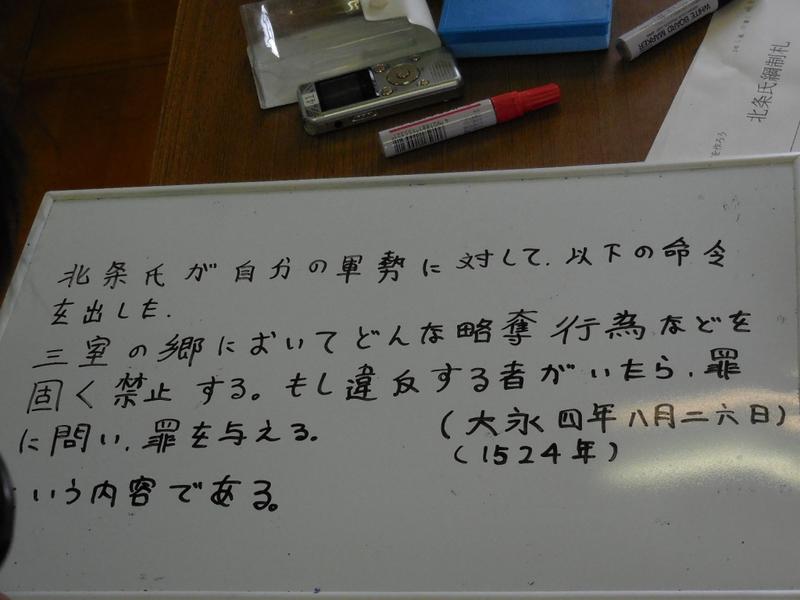 WHITE BOARD MARKER
北条氏綱制札
北条氏が自分の軍勢に対して、以下の命令
を出した.
三室の郷においてどんな略奪行為などを
固く禁止する。もし違反する者がいたら、罪
に問い、罪を与える。
(大永四年八月二六日)
(1524年)
いう内容である。